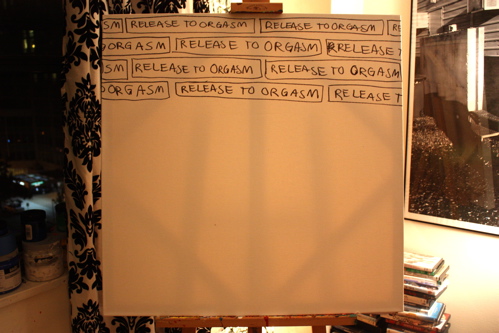 SM RELEASE TO ORGASM RELEASE TO ORGASM RE
ORGASM RELEASE TO ORGASM RELEASE T
SM RELEASE TO ORGASM RELEASE TO ORGASM
ORGASM RELEASE TO ORGASM RELEASE T